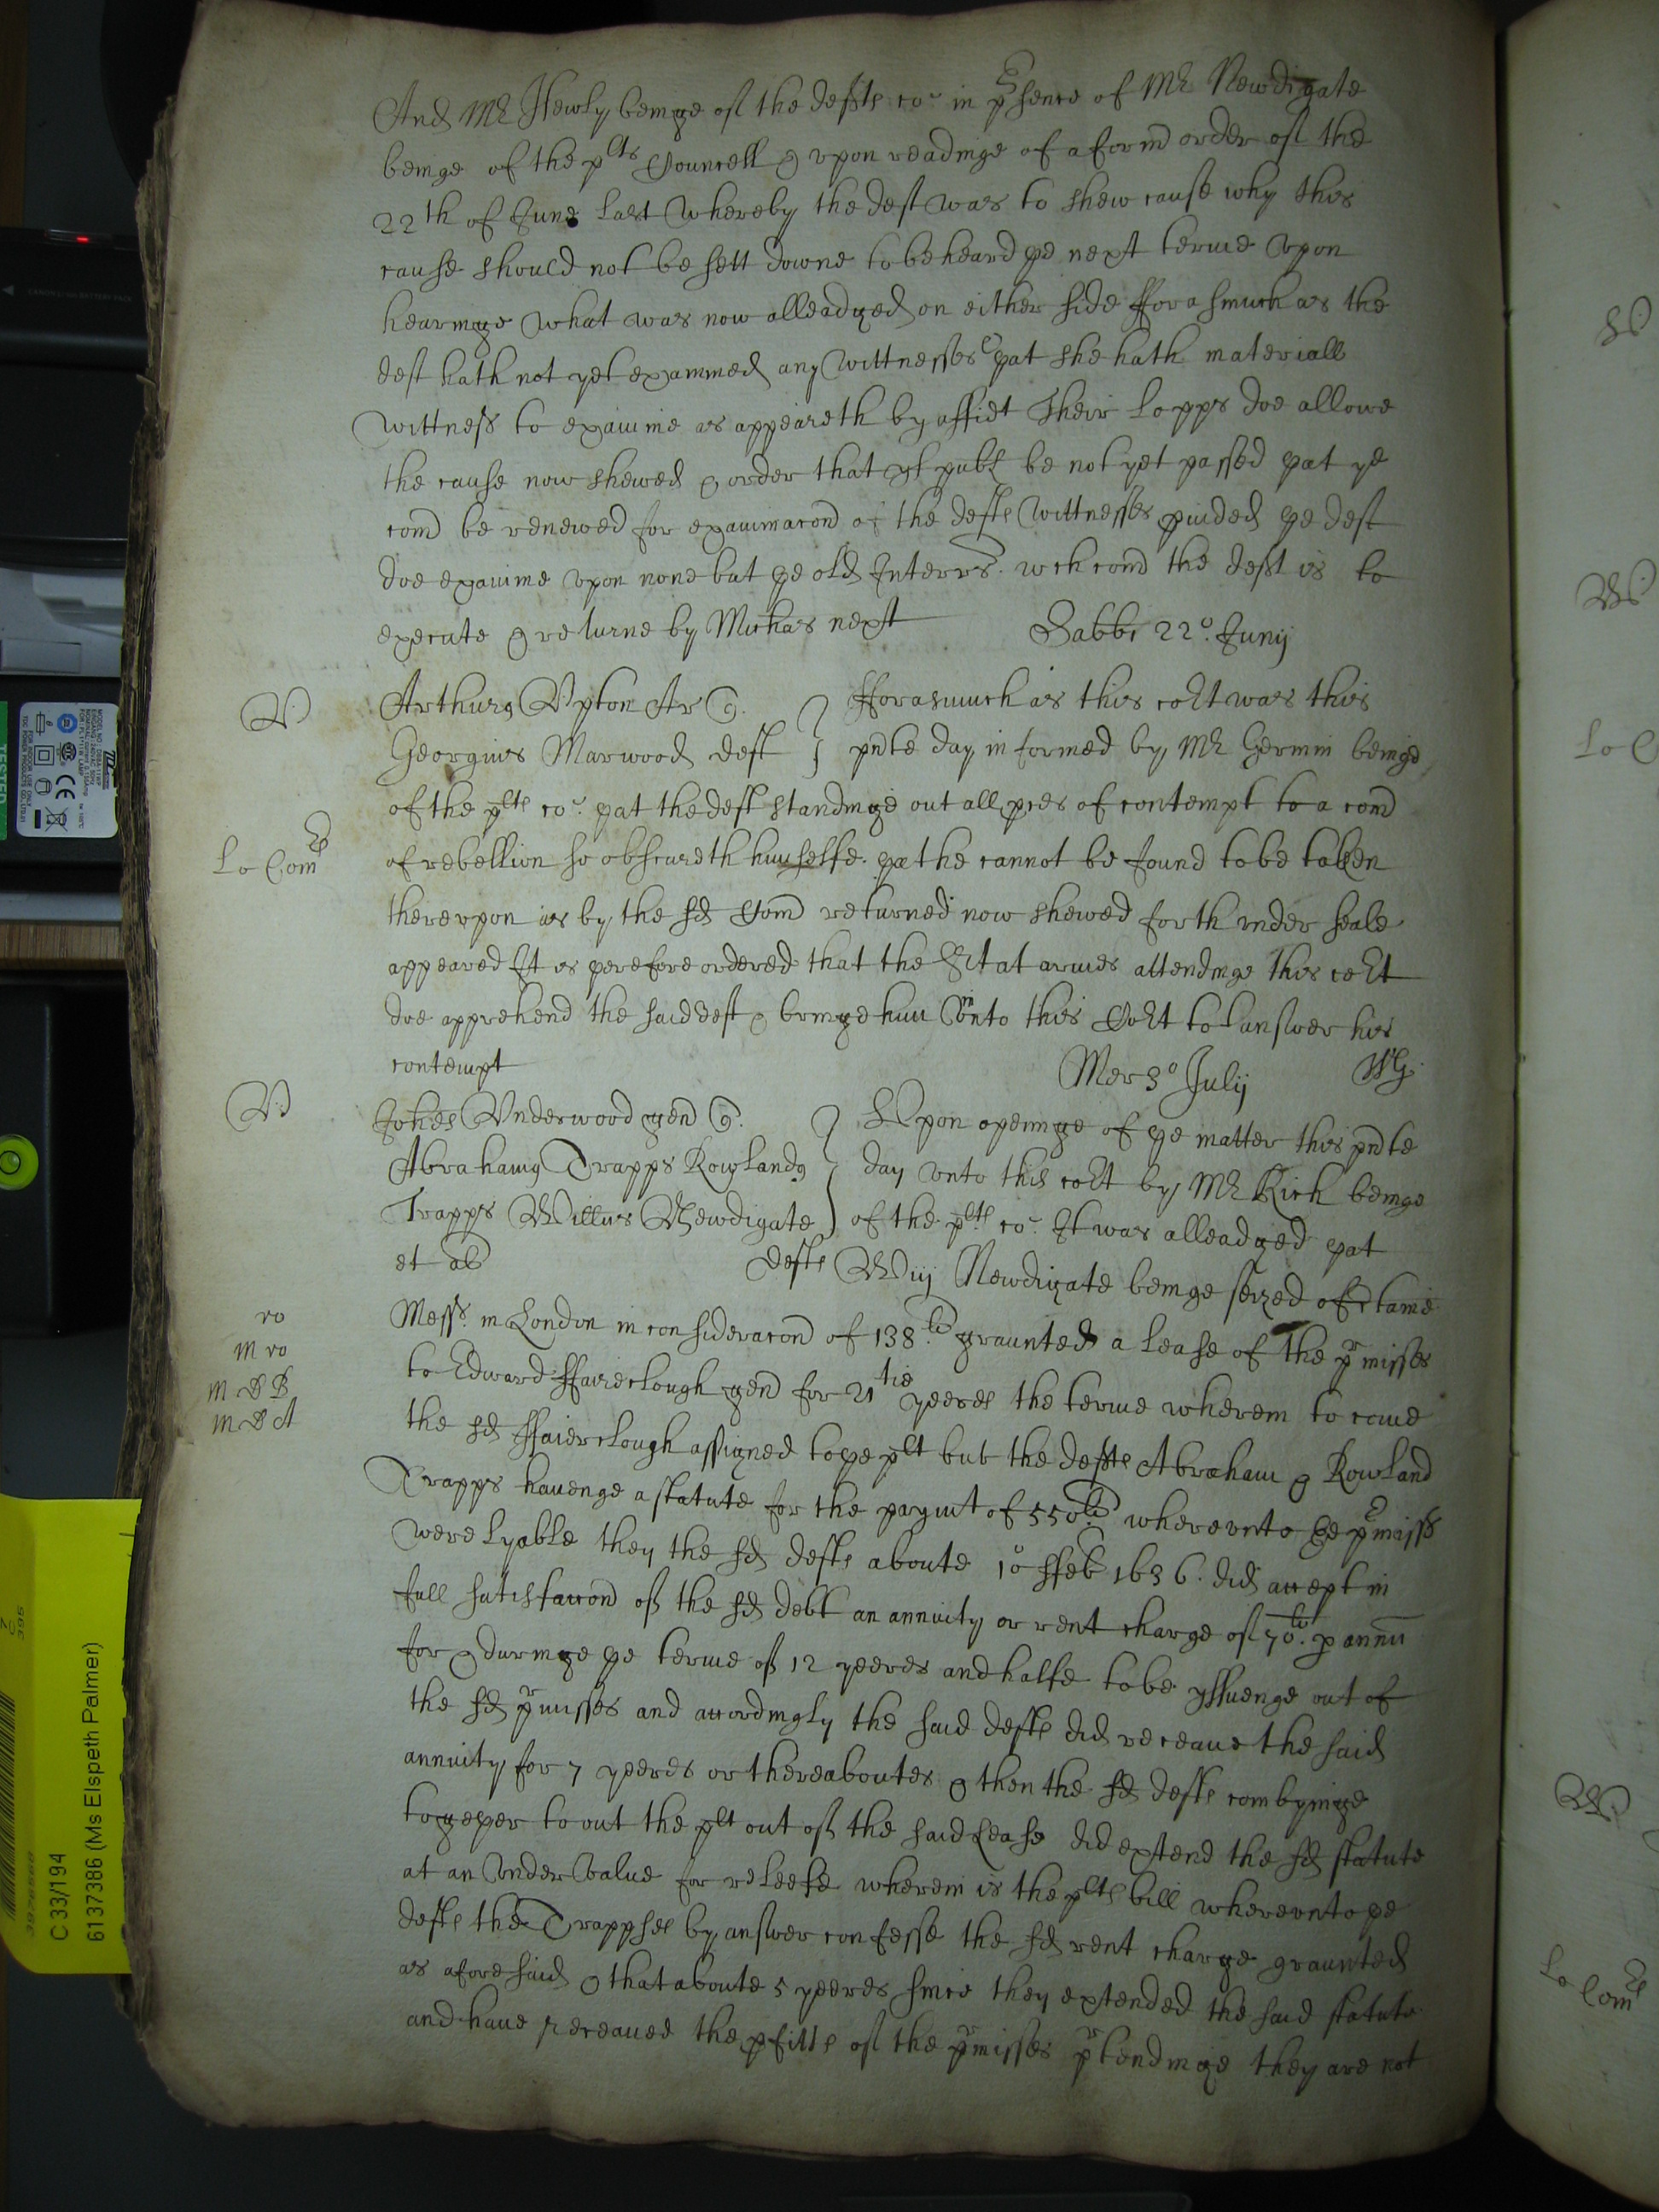 And Mr Hewly beinge of the defts co: in psence of Mr Newdigate
beinge of the plts Councell & vpon readinge of a form order of the
22th of June last Whereby the deft was to shew cause why this
cause should not be sett downe to be heard ye next terme Vpon
hearinge what was now alleadged on either side fforasmuch as the
deft hath not yet examined any Wittnesses & yat she hath materiall
Wittness to examine as appeareth by affidt Their Lopps doe allowe
the cause now shewed & order that yf publ be not yet passed yat ye
com be renewed for examinacon of the defts Wittnesses pvided ye deft
doe examine vpon none but ye old Interrs. wch com the deft is to
execute & returne by Michas next
Sabbi 22o. Junij
V.
Arthurus Vpton Ar Q. } fforasmuch as this coRt was this
Georgius Marwood deft } pnte day informed by Mr Germin beinge
of the plts co: yat the deft standinge out all pces of contempt to a com
Lo Comrs
of rebellion so obscureth himselfe yat he cannot be found to be taken
therevpon as by the sd Com returned now shewed forth vnder seale
appeared It is yerefore ordered that the SRt at armes attendinge this coRt
doe apprehend the said deft & bringe him into this CoRt to answer his
contempt
Mer 3o July WG.
V.
Johes Vnderwood gen Q. } Vpon openinge of ye matter this pnte
Abrahamus Trapps Rowlandus } day vnto this coRt by Mr Rich beinge
Trapps Willus Newdigate } of the plts co: It was alleadged yat
et al defts Wm Newdigate beinge seized of ctaine
ro
m ro
m D B
m D A
Messs. in London in consideracon of 138li graunted a lease of the pmisses
to Edward ffaireclough gen for 21tie yeeres the terme wherein to come
the sd ffaierclough assigned to ye plt but the defts Abraham & Rowland
Trapps havenge a statute for the paymt of 550li wherevnto ye pmisss
were lyable they the sd defts aboute 10 ffeb 1636. did accept in
full satisfaccon of the sd debt an annuity or rent charge of 70li. p annu
for & duringe ye terme of 12 yeeres and halfe to be yssuenge out of
the sd pmisses and accordingly the said defts did receaue the said
annuity for 7 yeeres or thereaboutes & then the sd defts combyninge
togeyer to out the plt out of the said lease did extend the sd statute
at an Vnder Value for releefe wherein is the plts bill wherevnto ye
defts the Trappses by answer confesse the sd rent charge graunted
as aforesaid & that aboute 5 yeeres since they extended the said statute
and haue receaued the pfitts of the pmisses ptendinge they are not
C 33/194
6137386 (Ms Elspeth Palmer)
TESTED